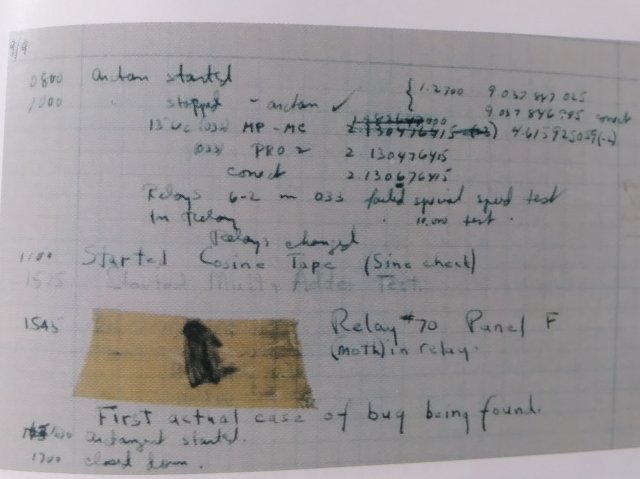 9/9
0800 antan started
1000 " stopped - antan ✓ { 1.2700 9.037 847 025
9.037 846 995 correct
(032) MP-MC 2.130476415 4.615925059(-2)
(033) PRO 2 2.130476415
correct 2.130676415
Relays 6-2 in 033 failed special speed test
In Relay " 10.000 test.
Relays changed
1100 Started Cosine Tape (Sine check)
1525 Started Mult+Adder Test.
1545 Relay #70 Panel F
(moth) in relay.
First actual case of bug being found.
1630 antangent started.
1700 closed down.